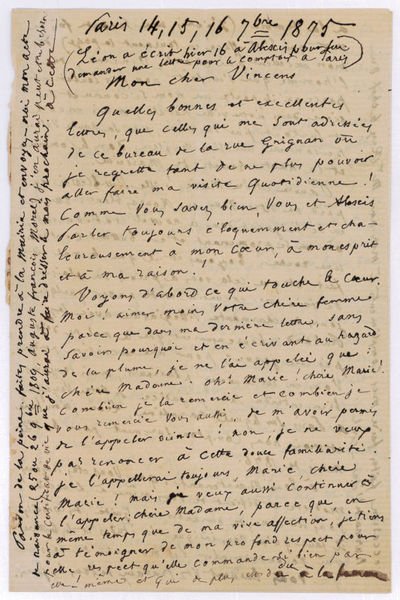 Paris 14, 15, 16 7bre 1875
Léon a écrit hier 16 à Alexis pour lui
demander une lettre pour le comptoir à Paris
Mon cher Vincens
Quelles bonnes et excellentes
lettres, que celles qui me sont adressées
de ce bureau de la rue Grignan où
je regrette tant de ne plus pouvoir
aller faire ma visite quotidienne !
Comme vous savez bien, vous et Alexis
parler toujours éloquemment et cha-
leureusement à mon cœur, à mon esprit
et à ma raison !
Voyons d'abord ce qui touche le cœur.
Moi ! aimer moins votre chère femme
parce que dans ma dernière lettre, sans
savoir pourquoi et en écrivant au hazard
de la plume, je ne l'ai appelée que :
chère Madame. oh ! Marie, chère Marie !
combien je la remercie et combien je
vous remercie vous aussi, de m'avoir permis
de l'appeler ainsi ! non, je ne veux
pas renoncer à cette douce familiarité.
je l'appellerai toujours, Marie, chère
Marie ! mais je veux aussi continuer à
l'appeler : chère Madame, parce que en
même temps que de ma vive affection, je tiens
à témoigner de mon profond respect pour
elle, respect qu'elle commande si bien par
elle-même et qui de plus est dû à la femme
Pardon de la peine. faites prendre à la Mairie et envoyez-moi mon acte
de naissance, 25 ou 26 9bre 1809, auguste françois Morel, j'en aurai peut-être besoin
pour le certificat de vie que j'aurai à faire dresser le mois prochain à Cette